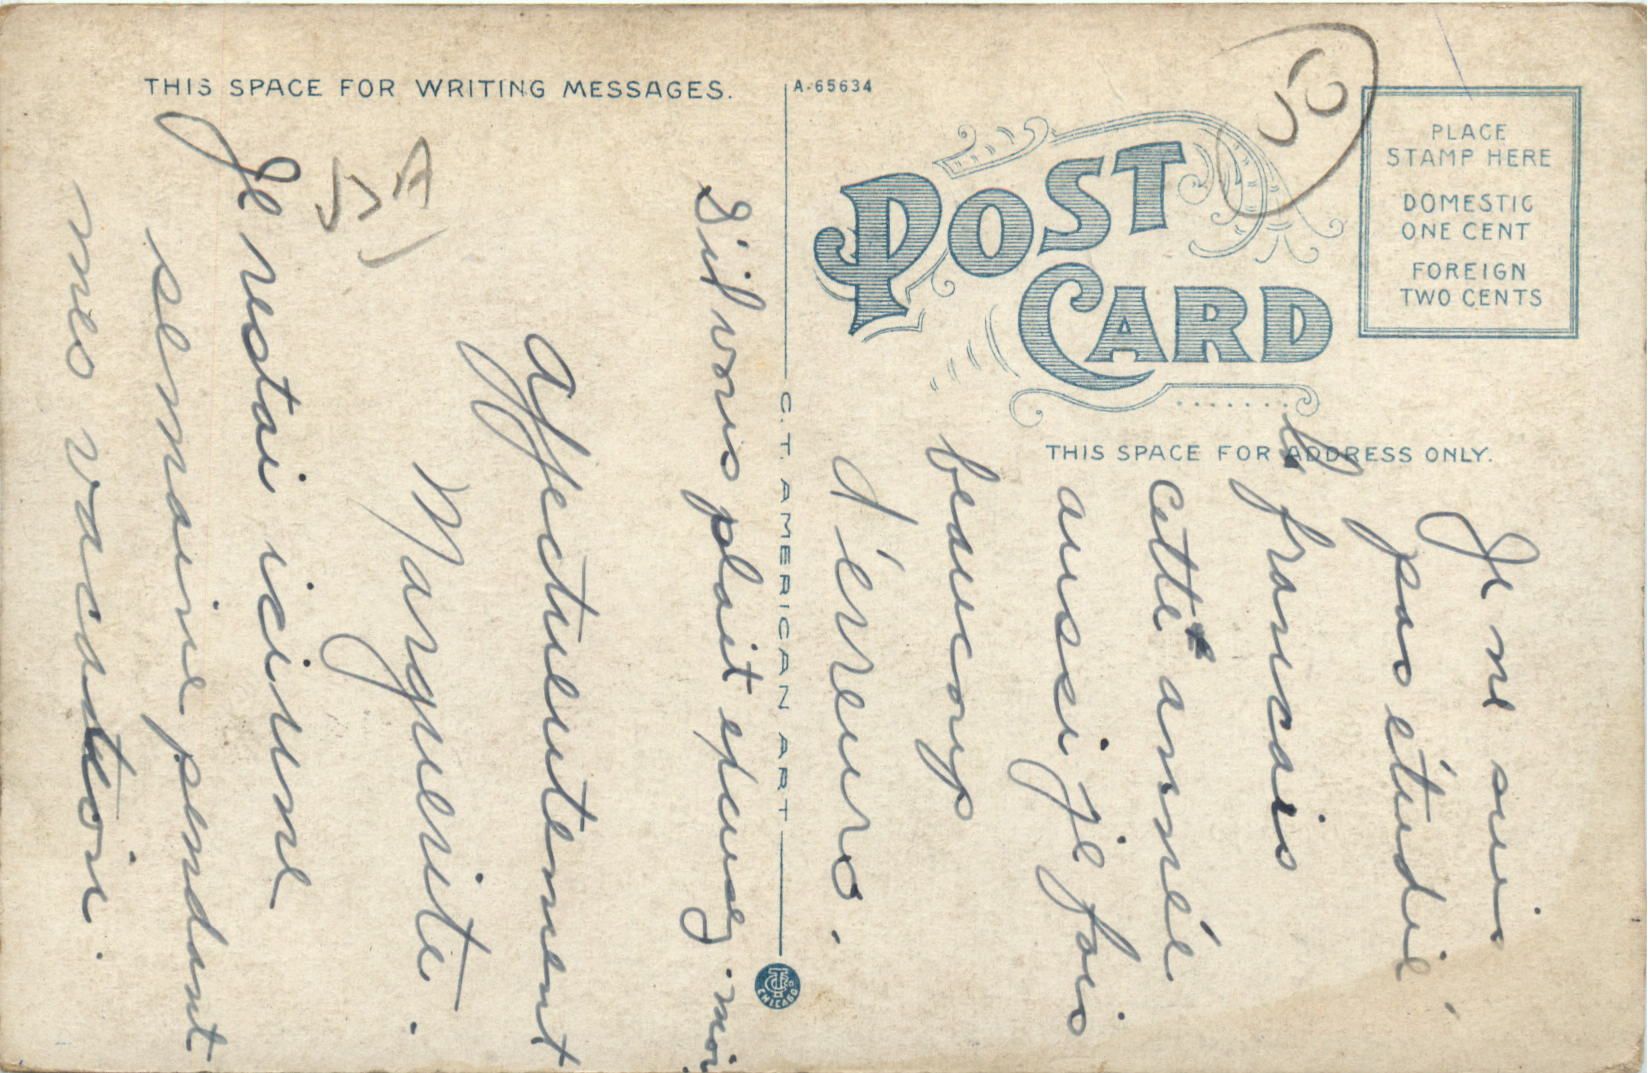 THIS SPACE FOR WRITING MESSAGES.
A-65634
POST
CARD
PLACE
STAMP HERE
DOMESTIC
ONE CENT
FOREIGN
TWO CENTS
THIS SPACE FOR ADDRESS ONLY.
C.T. AMERICAN ART
CHICAGO
Je ne suis
pas étudié
le francais
cette année
aussi je fais
beaucoup
d'érreurs.
S'il vous plait excusez-moi
Affectueutement
Marguerite.
Je restai ici une
semaine pendant
mes vacation.